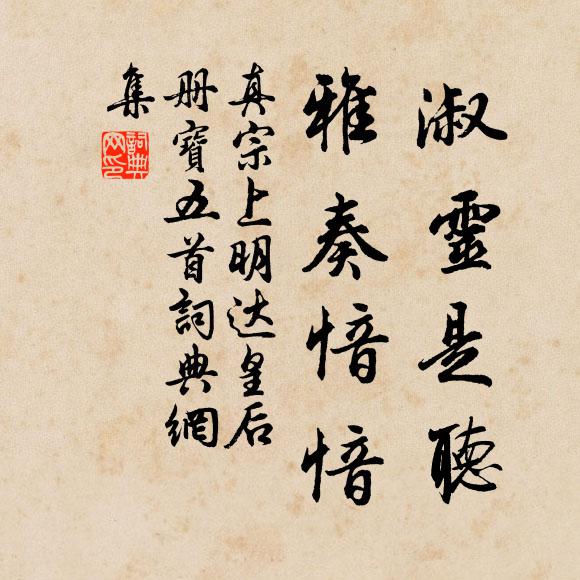 淑靈是聽
雅奏愔愔
真宗上明达皇后
册寶五首詞典網
集
詞典
网印